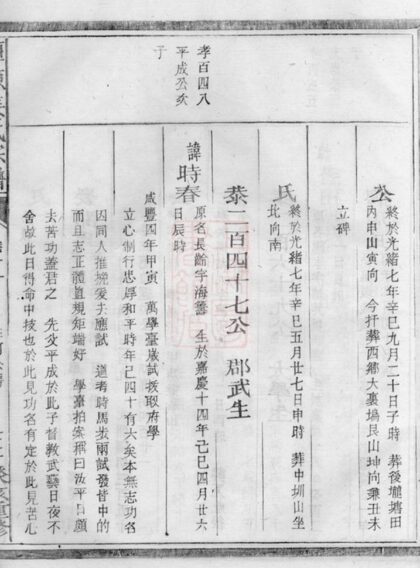 孝百四八
平成公次
子
公
終於光緒七年辛巳九月二十日子時　葬後壠塘田
內申山寅向　今扦葬西鄉大裏塢艮山坤向兼丑未
立碑
氏
終於光緒七年辛巳五月廿七日申時　葬中圳山坐
北向南
恭二百四十七公　郡武生
諱時春
原名長齡字海籌　生於嘉慶十四年己巳四月廿六
日辰時
咸豐四年甲寅　萬學臺歲試拔取府學
立心制行忠厚和平時年已四十有六矣本無志功名
因同人推挽爰夫應試　道考時馬步兩試發皆中的
而且志正體直規矩端好　學臺拍案稱曰汝平日顧
去苦功蓋君之　先父平成於此子督教武藝日夜不
舍故此日得命中技也於此見功名有定於此見苦心